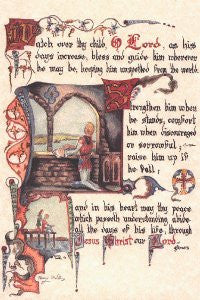 Watch over thy child, O Lord, as his
days increase; bless and guide him wherever
he may be, keeping him unspotted from the world.
Strengthen him when
he stands, comfort
him when discouraged
or sorrowful;
raise him up if
he fall;
and in his heart may thy peace
which passeth understanding abide
all the days of his life, through
Jesus Christ our Lord